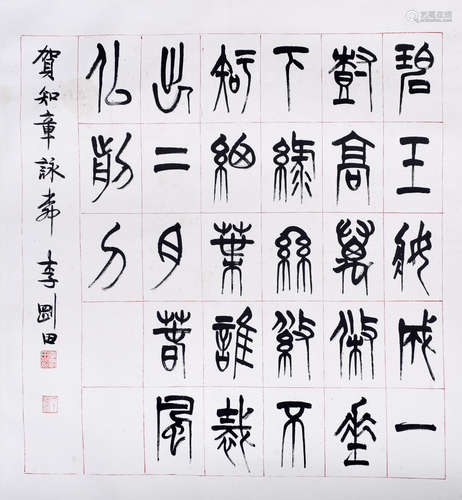 碧玉妝成一
樹高萬條垂
下綠絲絛不
知細葉誰裁
出二月春風
似剪刀
賀知章詠柳 李剛田